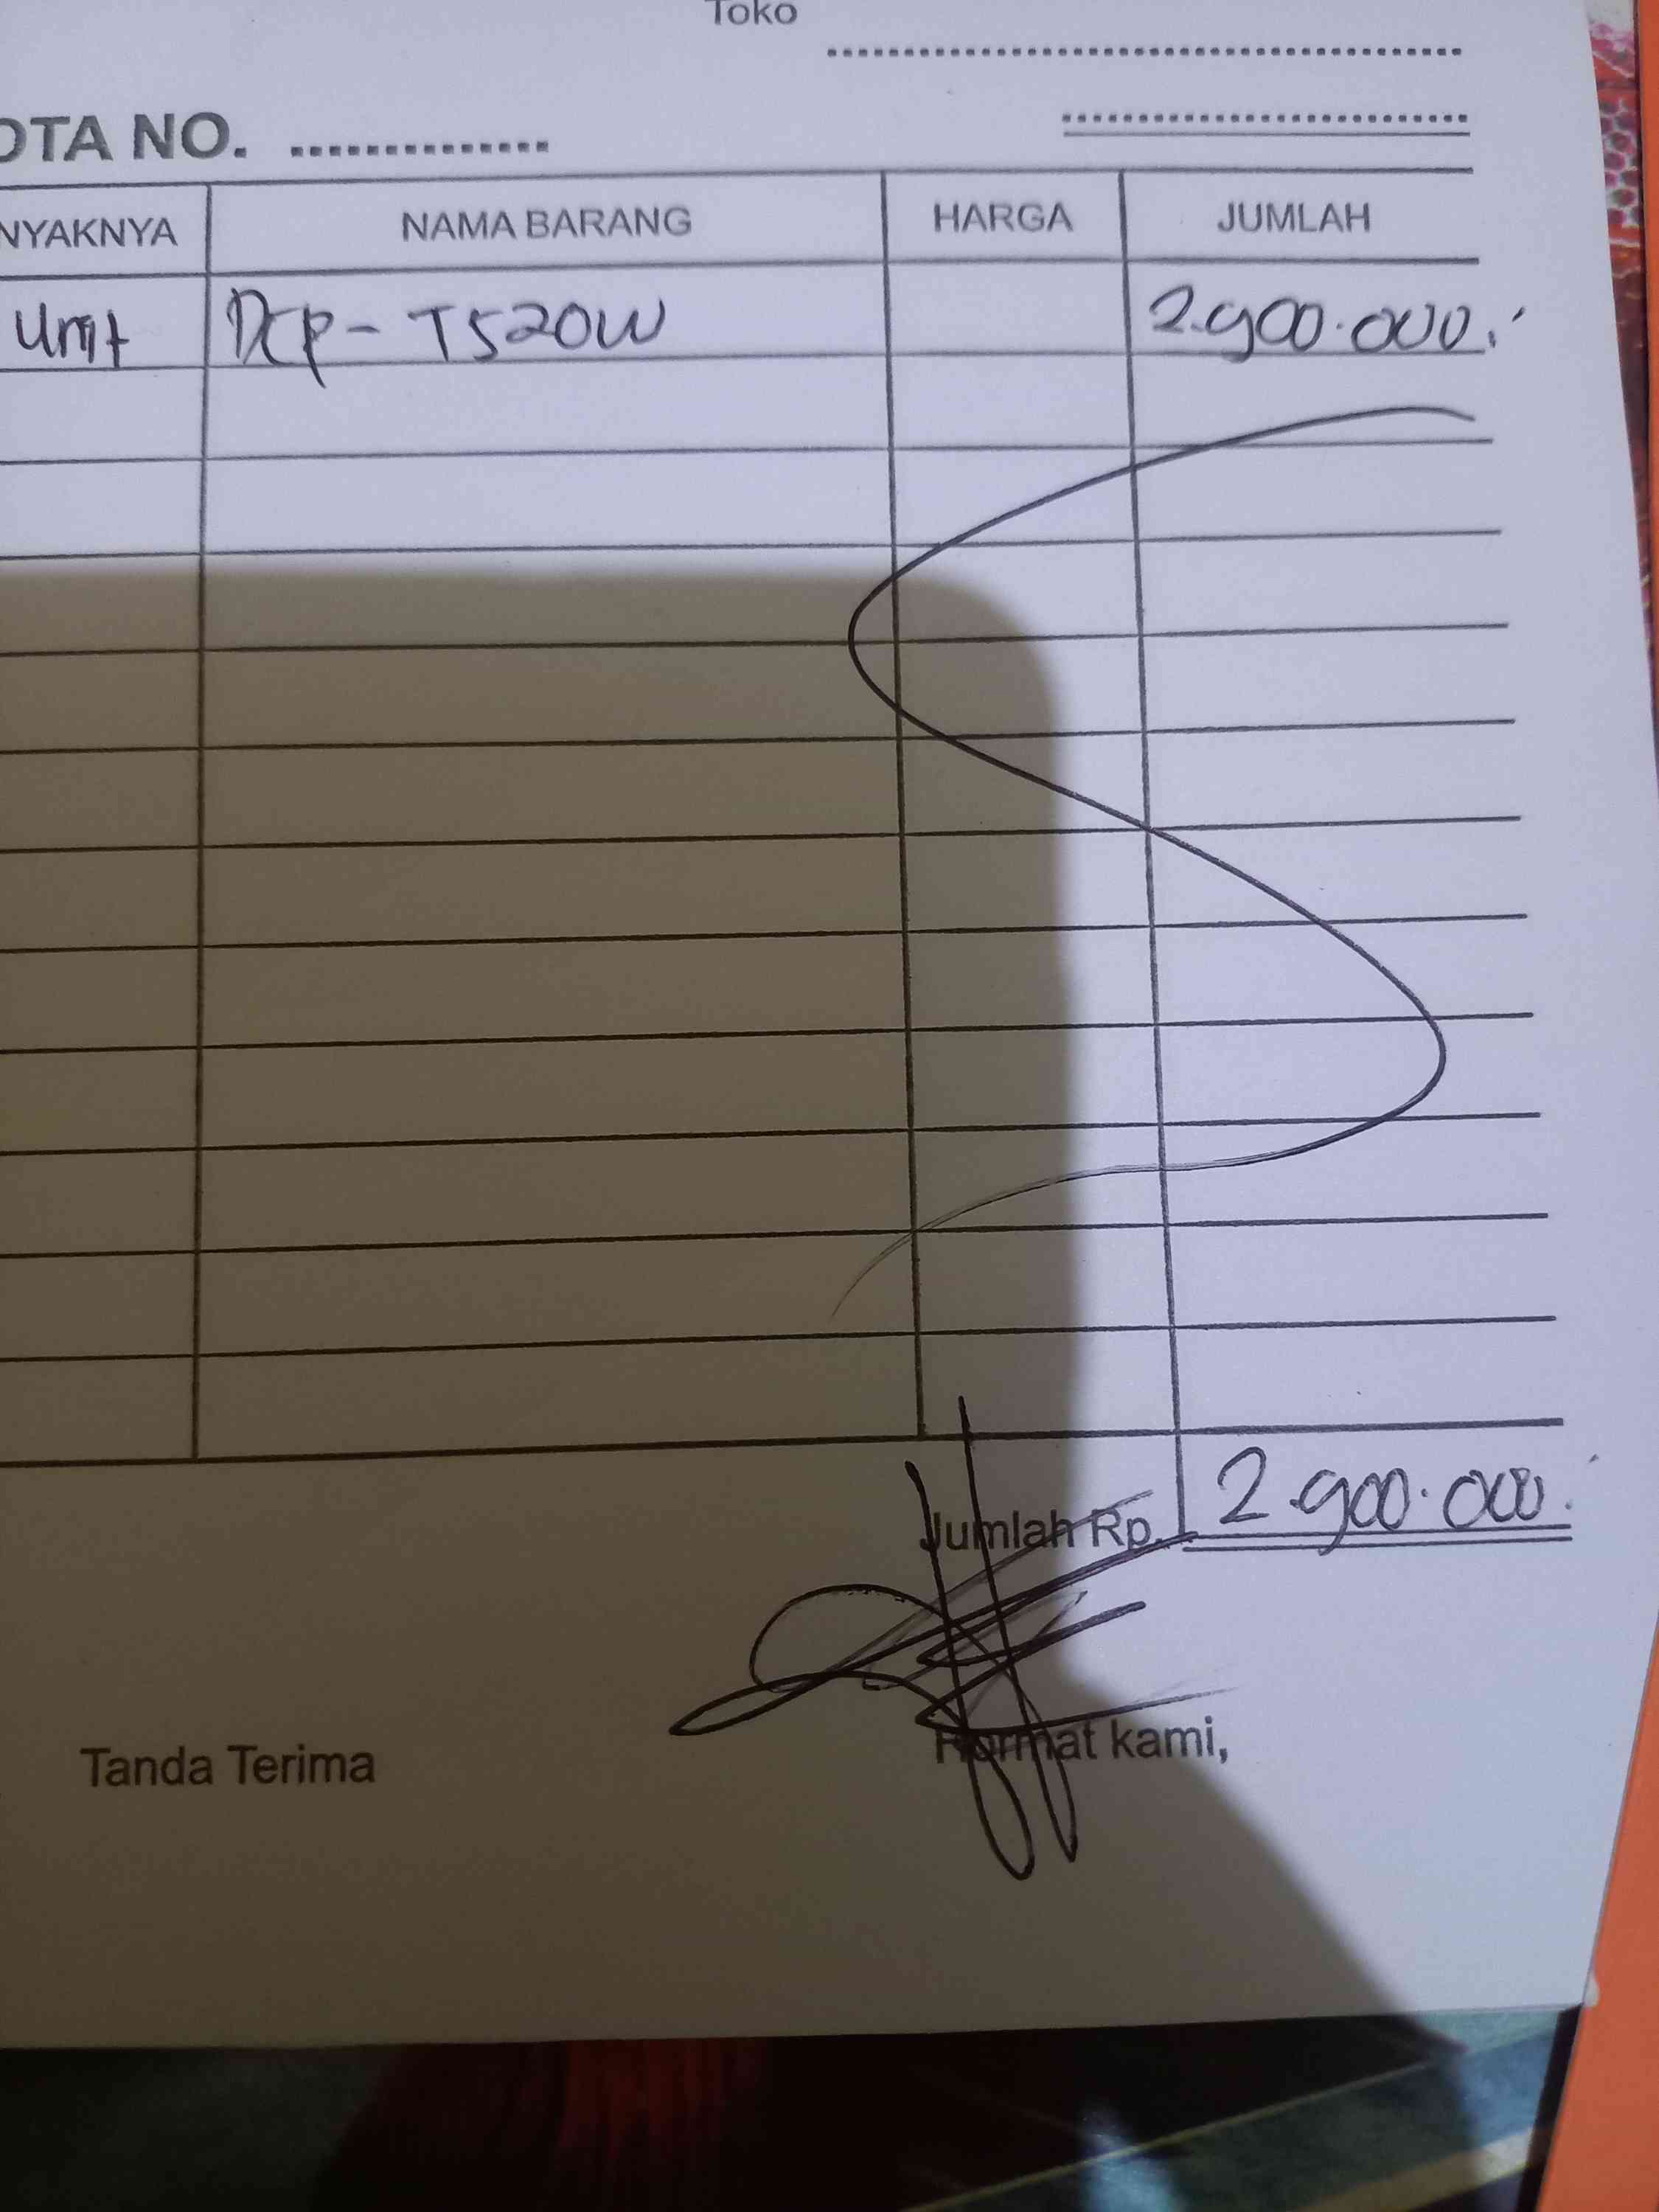 Toko
OTA NO. ...............
NYAKNYA NAMA BARANG HARGA JUMLAH
Unit DCP - T520W 2.900.000.
Jumlah Rp. 2.900.000.
Tanda Terima Hormat kami,